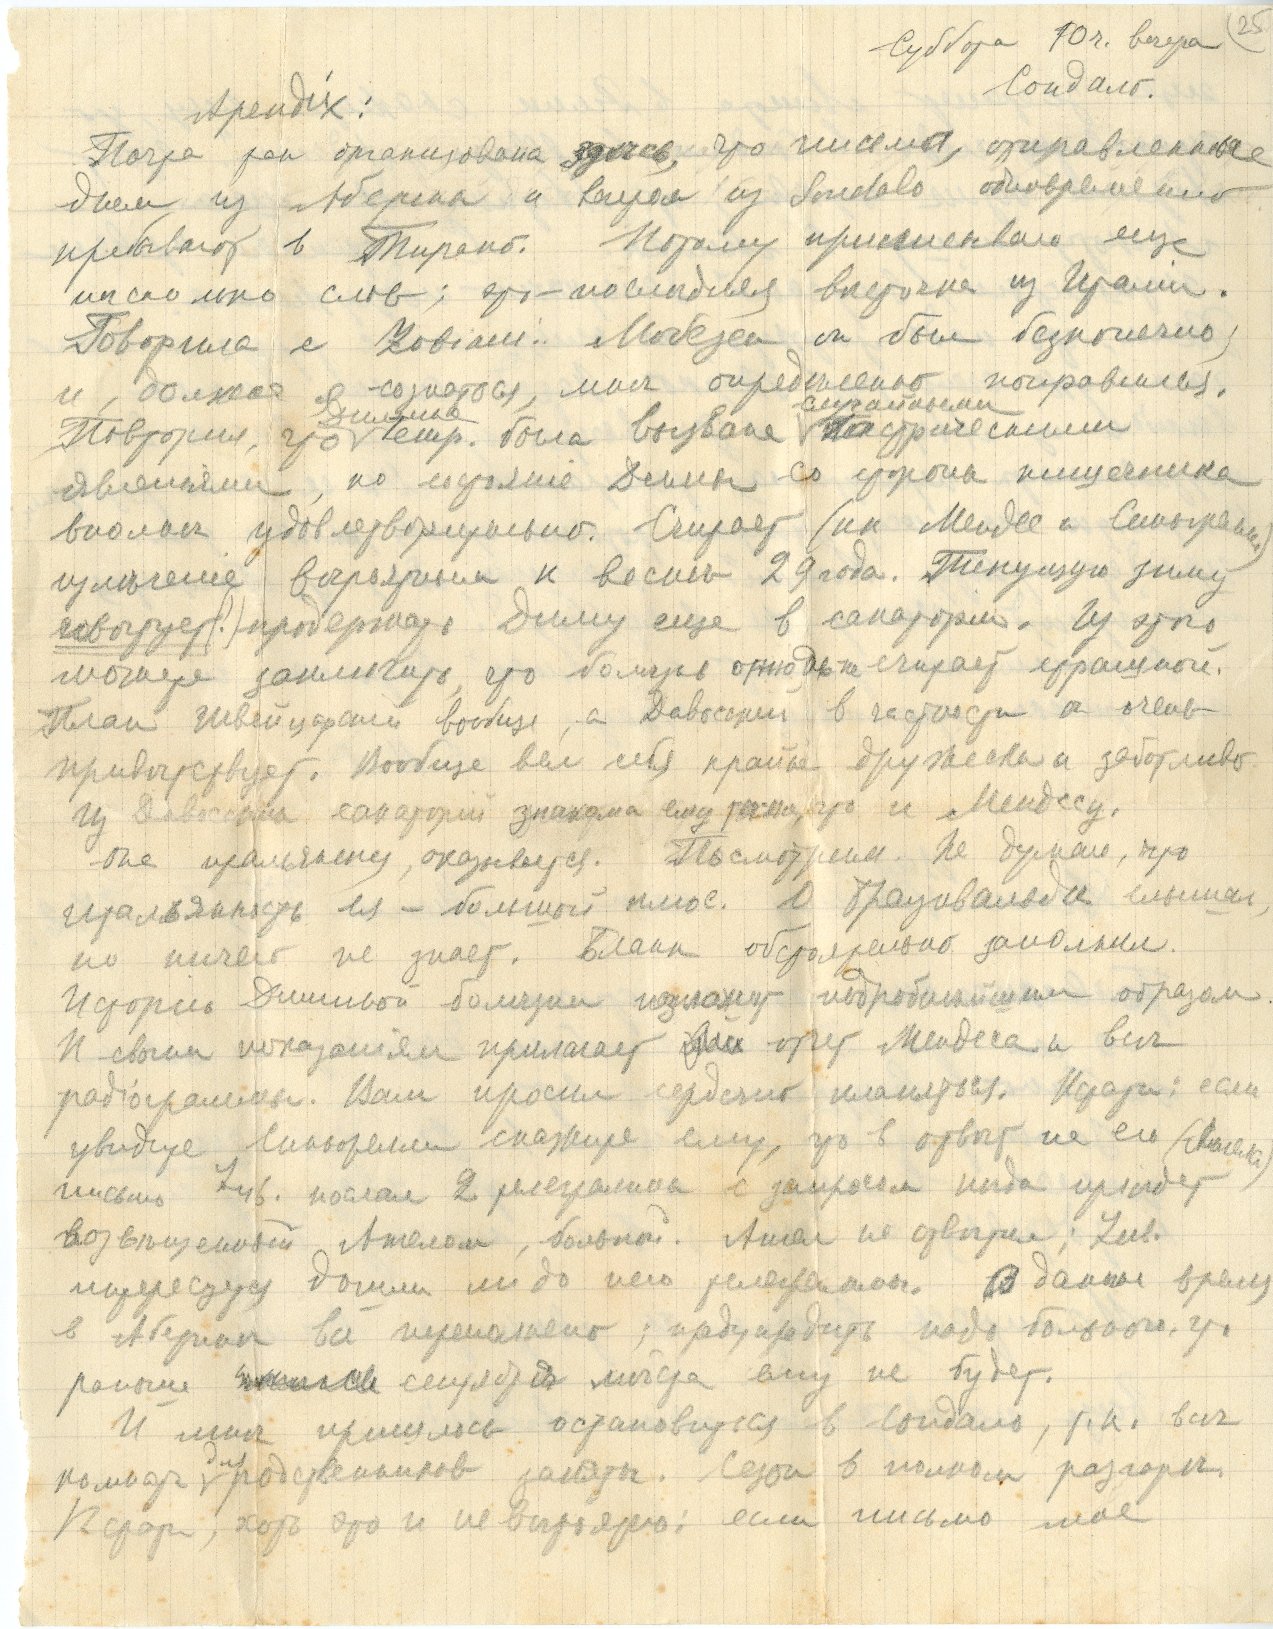 25
Суббота 10 ч. вечера
Сондало.
Apendix:
Почта так организована здесь, что письма, отправленные
днем из Абетина и вечером из Sondalo одновременно
пребывают в Тирано. Потому приписываю еще
несколько слов; это – последняя весточка из Италии.
Говорила с Zubiani. Любезен он был безконечно,
и, должна я сознаться, мне определенно понравился.
Повторил, что Димина темп. была вызвана случайными гастрическими
явлениями, но состояние Димы со стороны кишечника
вполне удовлетворительно. Считает (как Мендес и Синьорелли)
излечение вероятным к весне 29 года. Текущую зиму
советует (!) продержать Диму еще в санатории. Из этого
можете заключить, что болезнь отнюдь не считает страшной.
План Швейцарии вообще, а Давоский в частности он очень
приветствует. Вообще вел себя крайне дружески и заботливо.
Из Давоских санаторий знакома ему та же, что и Мендесу.
Она итальянская, оказывается. Посмотрим. Не думаю, что
итальянность ея – большой плюс. О слышал,
но ничего не знает. Бланк обстоятельно заполнил.
Историю Диминой болезни изложит подробнейшим образом.
К своим показаниям прилагает отчет Мендеса и все
радіограммы. Вам просил сердечно кланяться. Кстати: если
увидите Синьорелли скажите ему, что в ответ на его
письмо Zub. послал 2 телеграммы с запросом когда приедет
возвещенный Анжелом, больной. Анжел не ответил; Zub.
интересуется дошли ли до него телеграммы. В данное время
в Абетине все переполнено; предупредить надо больного, что
раньше сентября места ему не будет.
И мне пришлось остановиться в Сондало, т.к. все
комнаты для родственников заняты. Сезон в полном разгаре.
Кстати, хоть это и не вероятно: если письмо мое